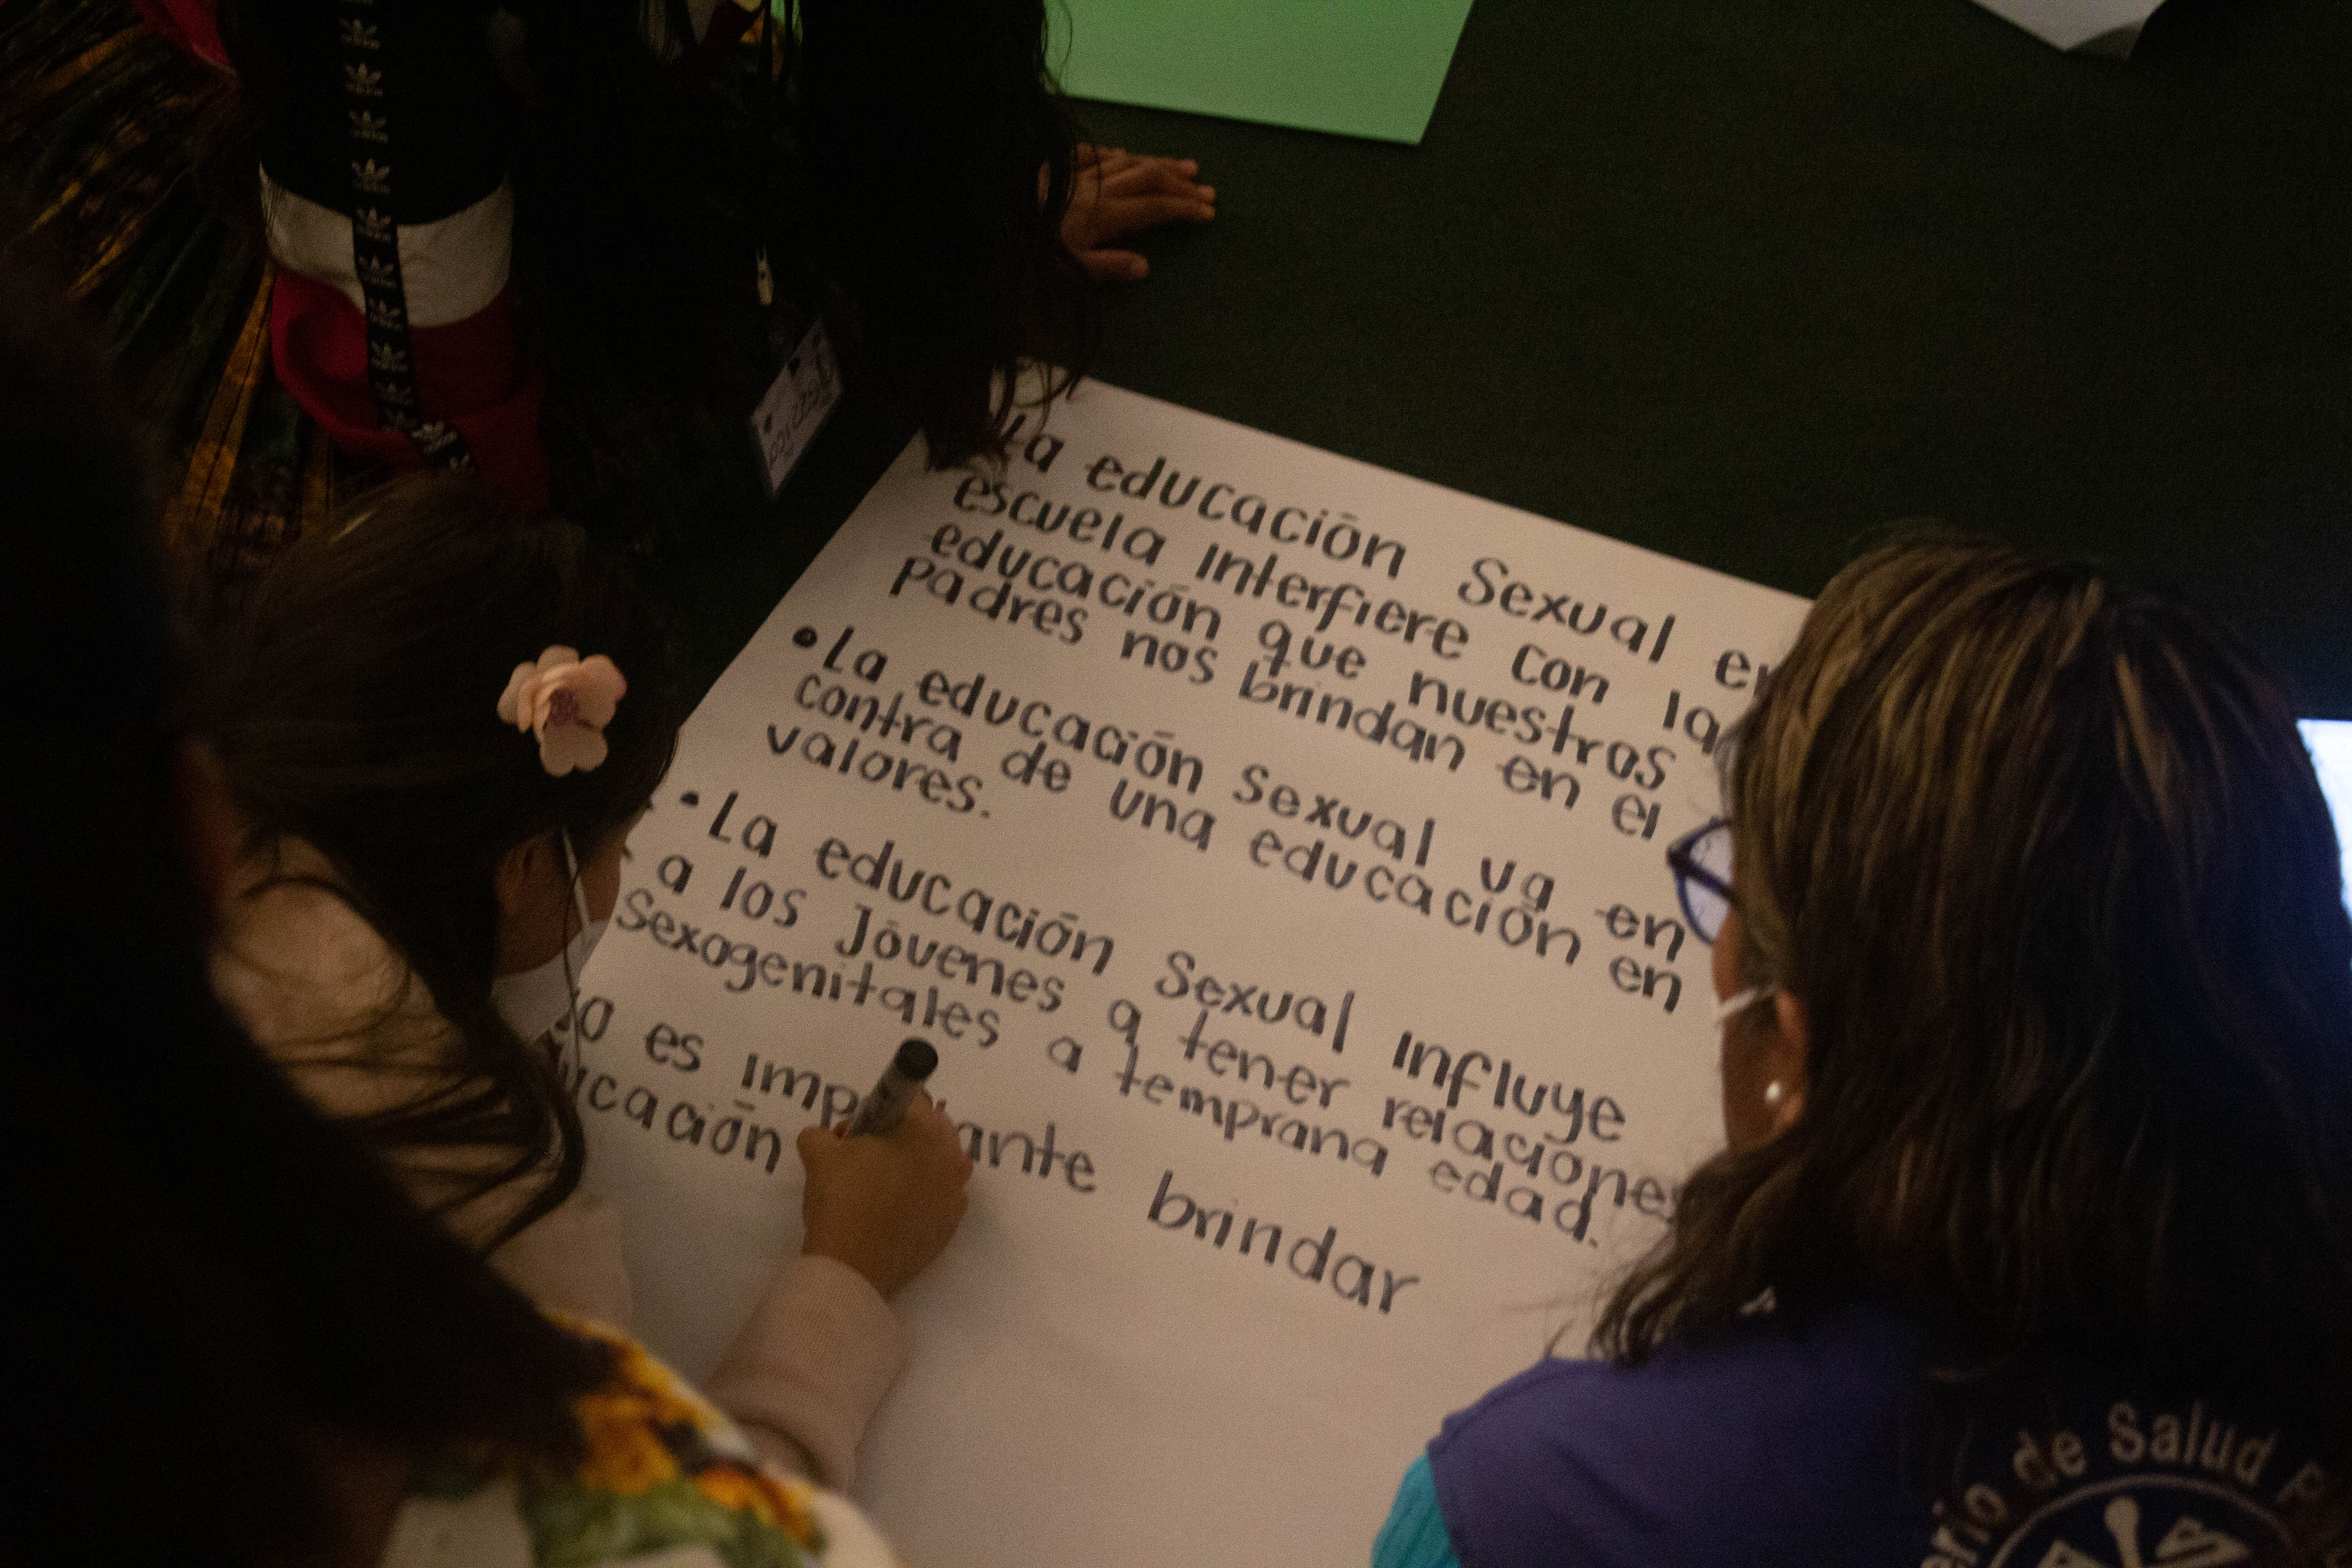 La educación Sexual en
escuela interfiere con la
educación que nuestros
padres nos brindan en el
• La educación sexual va en
contra de una educación en
valores.
• La educación Sexual influye
a los Jóvenes a tener relaciones
Sexogenitales a temprana edad.
es brindar
de Salud